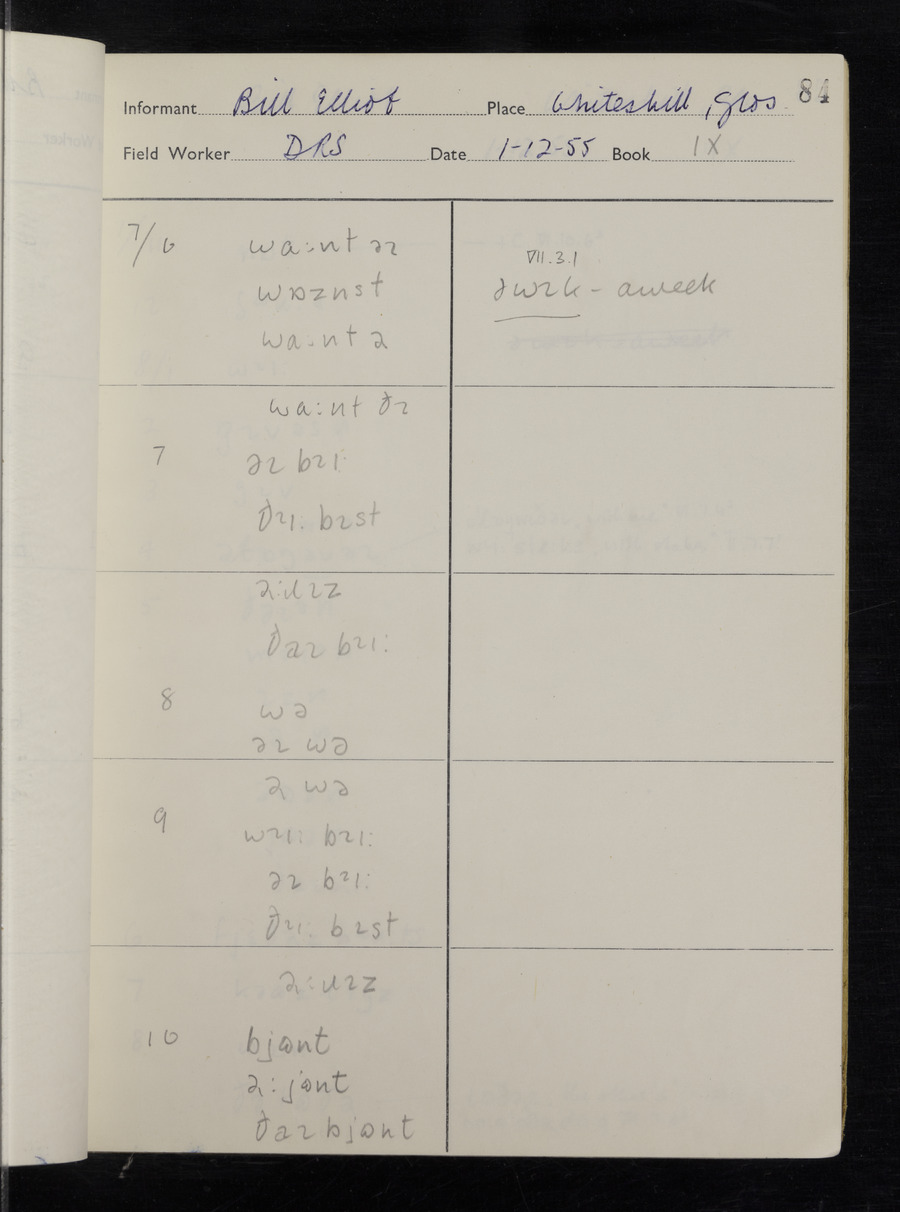 84
Informant Bill Elliot Place Whiteshill, Glos
Field Worker DRS Date 1-12-55 Book IX
7/6 wa:nt əɪ
wɒznst
wa:nt ə
VII.3.1
əwɪk - aweek
wa:nt ðɪ
7 əɪ bɪi:
ðɪi: bɪst
ə:ɪz
ðaɪ bɪi:
8 wə
əɪ wə
ə wə
9 wɪi: bɪi:
əɪ bɪi:
ðɪi: bɪst
10 bjɒnt
ə:jɒnt
ðaɪ bjɒnt